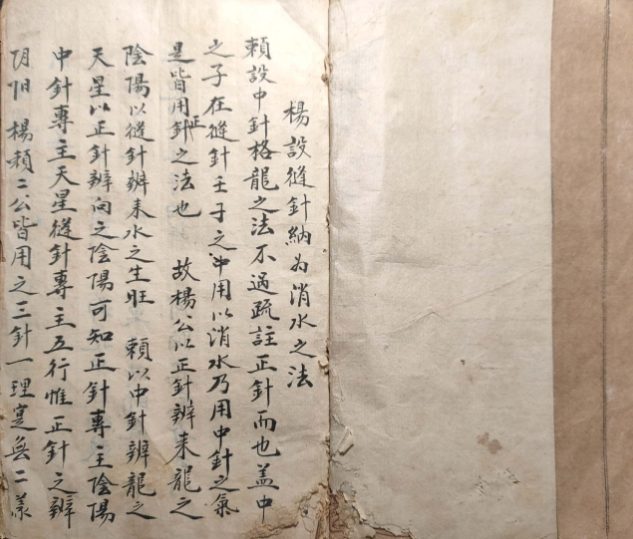 楊設縫針納為消水之法
賴設中針格龍之法不過疏註正針而也盖中
之子在縫針壬子之中用以消水乃用中針之氣
是皆用正針之法也 故楊公以正針辨来龍之
陰陽以縫針辨来水之生旺 賴以中針辨龍之
天星以正針辨向之陰陽可知正針專主陰陽
中針專主天星縫針專主五行惟正針之辨
阴阳 楊賴二公皆用之三針一理寔無二羕